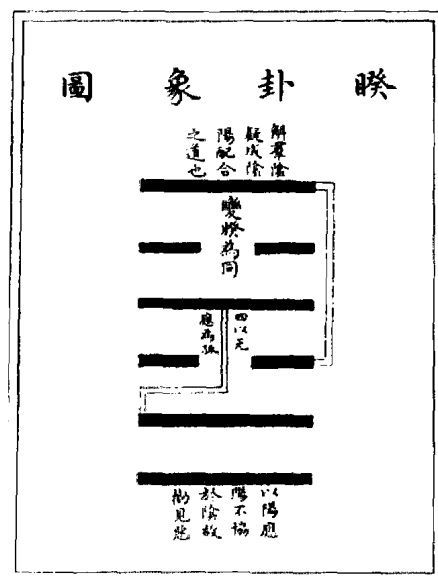 睽卦象圖
解羣陰
疑成陰
陽配合
之道也
變睽為同
四以无
應為孤
以陽應
陽不協
於陰故
見